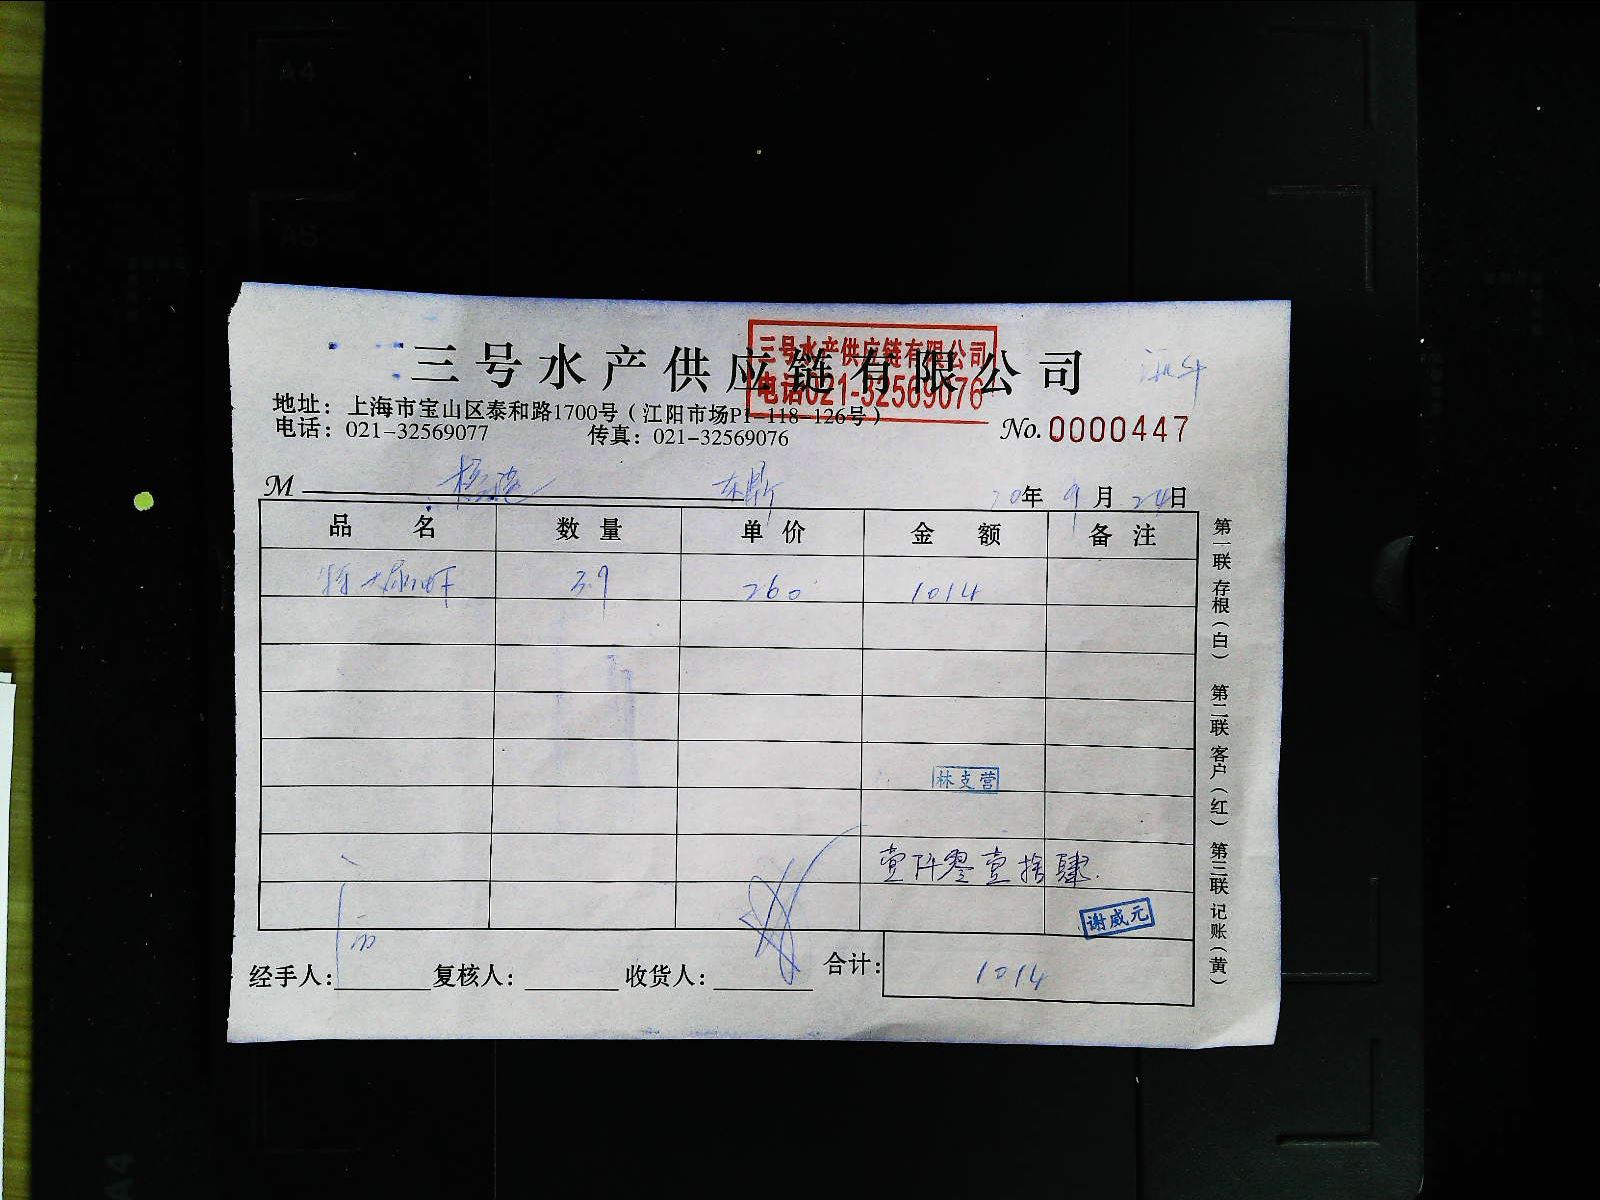 三号水产供应链有限公司
三号水产供应链有限公司
电话021-32569076
地址：上海市宝山区泰和路1700号（江阳市场P1-118-126号）
电话：021-32569077 传真：021-32569076
No. 0000447
M 东鼎 20年 9月 24日
品名 数量 单价 金额 备注
特大 虾 3.9 260 1014
林支营
壹仟零壹拾肆.
谢威元
经手人： 复核人： 收货人： 合计： 1014
第一联 存根（白） 第二联 客户（红） 第三联 记账（黄）
A4
A5
A4